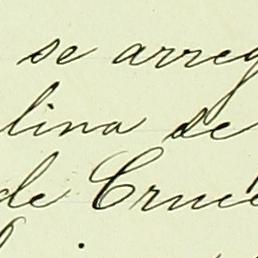 se arreg
lina de
de Cruce